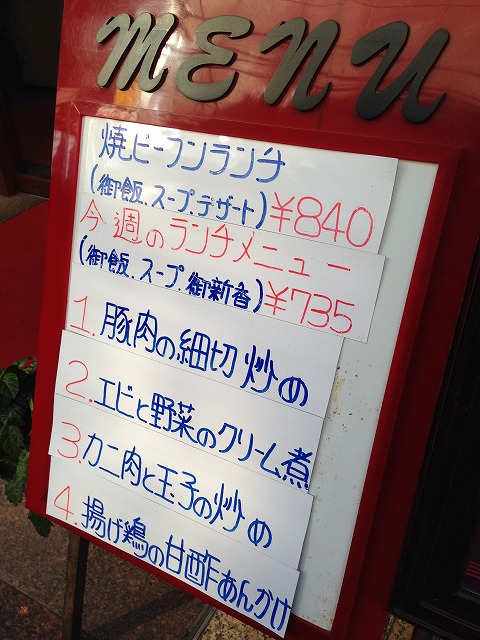 MENU
焼ビーフンランチ
(御飯.スープ.デザート)¥840
今週のランチメニュー
(御飯.スープ.御新香)¥735
1.豚肉の細切炒め
2.エビと野菜のクリーム煮
3.カニ肉と玉子の炒め
4.揚げ鶏の甘酢あんかけ